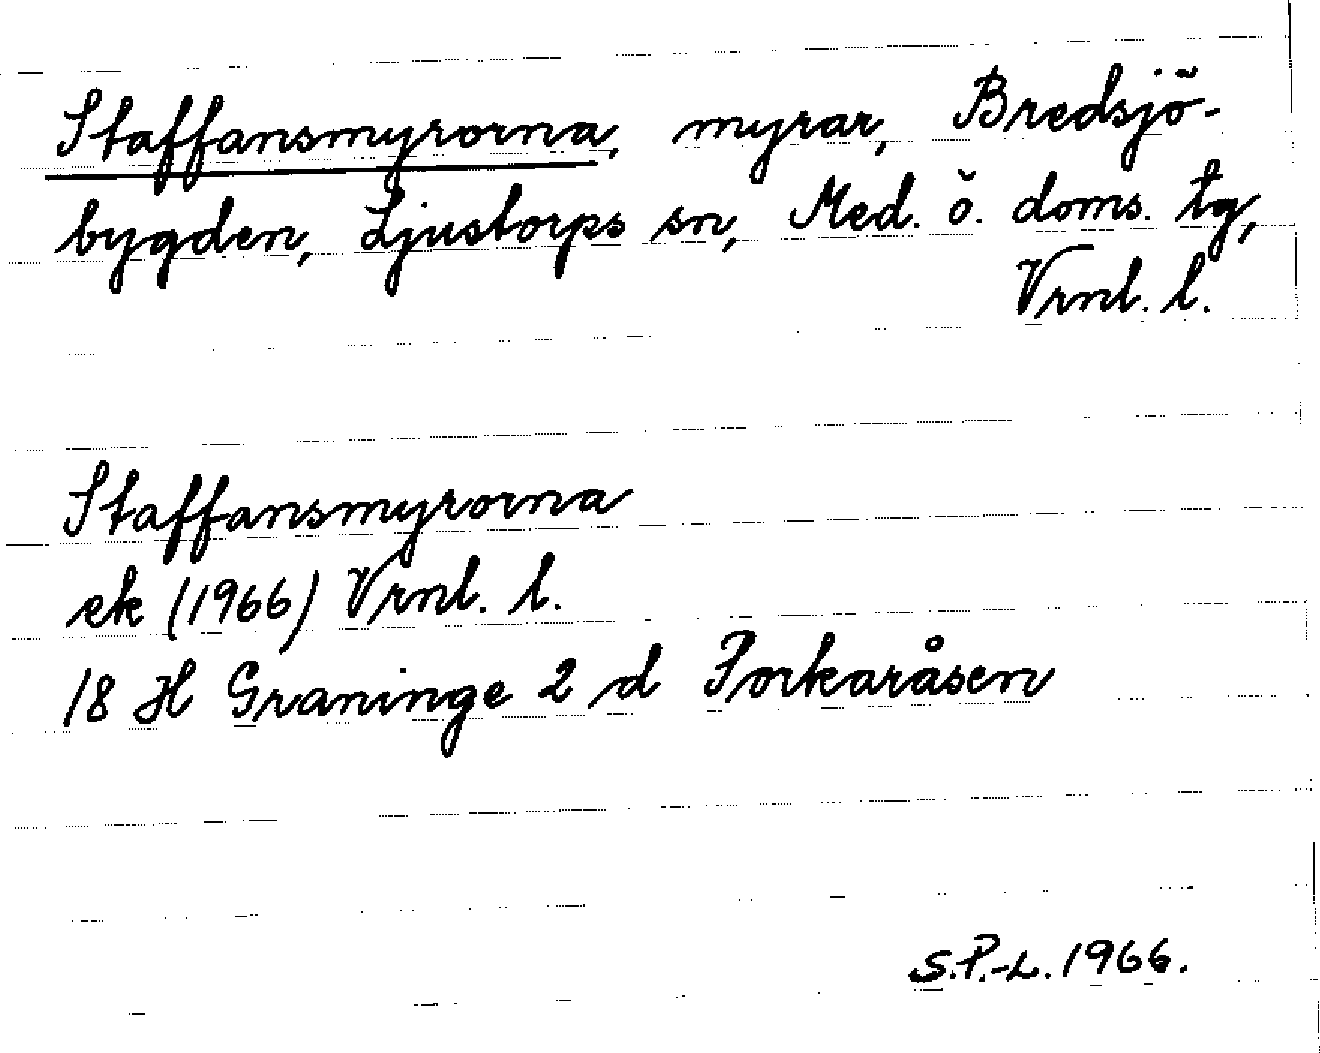 Staffansmyrorna, myrar, Bredsjö-
bygden, Ljustorps sn, Med. ö. doms. tg,
Vrnl. l.
Staffansmyrorna
ek (1966) Vrnl. l.
18 H Graninge 2 d Porkaråsen
S.P.-L. 1966.